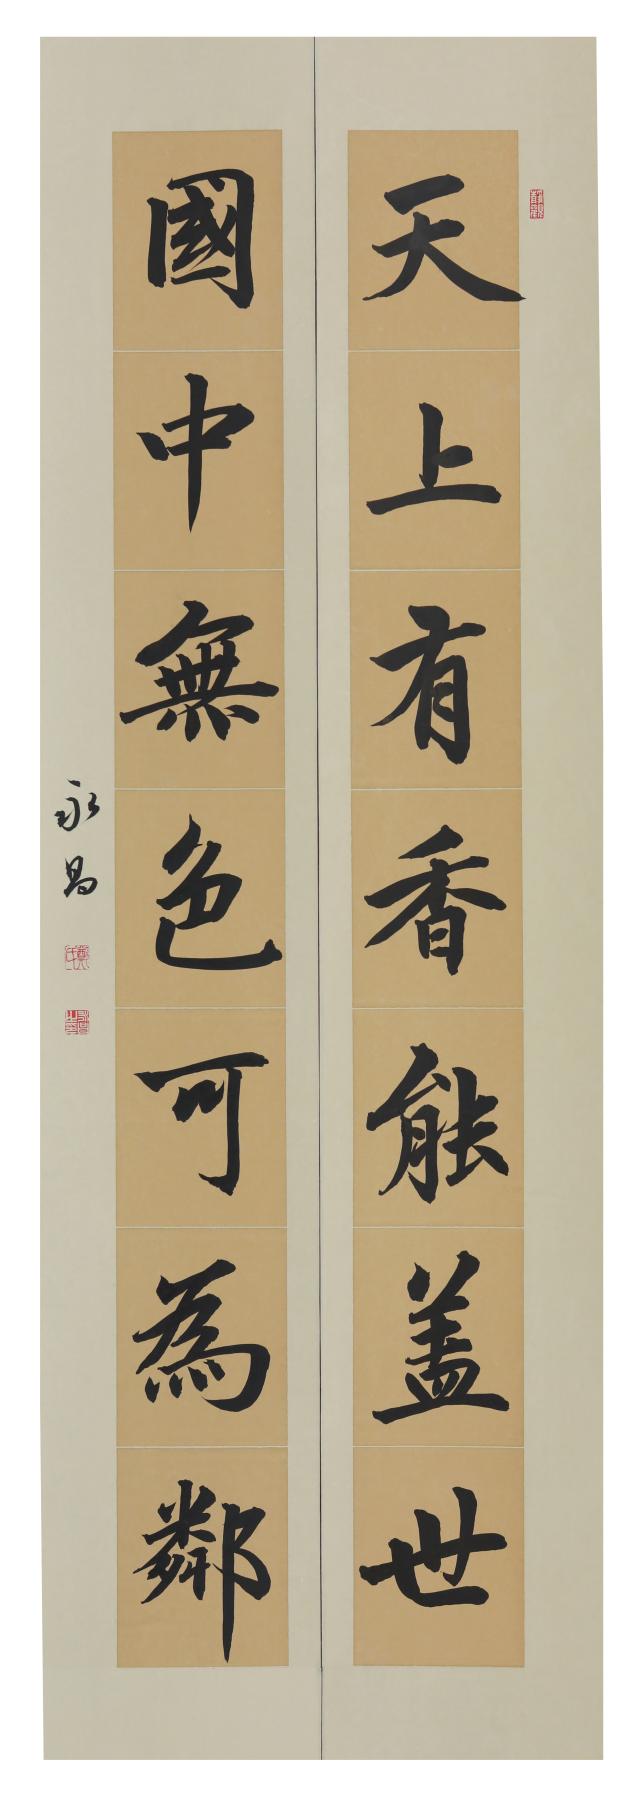 天上有香能盖世
國中無色可為鄰
永昌